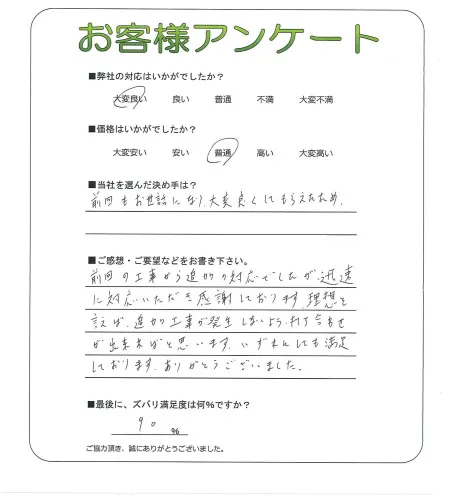 お客様アンケート
■弊社の対応はいかがでしたか？
大変良い 良い 普通 不満 大変不満
■価格はいかがでしたか？
大変安い 安い 普通 高い 大変高い
■当社を選んだ決め手は？
前回もお世話になり、大変良くしてもらえたため。
■ご感想・ご要望などをお書き下さい。
前回の工事から追加の対応でしたが、迅速
に対応いただき感謝しております。理想を
言えば、追加工事が発生しないよう、打ち合わせ
が出来ればと思います。いずれにしても満足
しております。ありがとうございました。
■最後に、ズバリ満足度は何%ですか？
90 %
ご協力頂き、誠にありがとうございました。